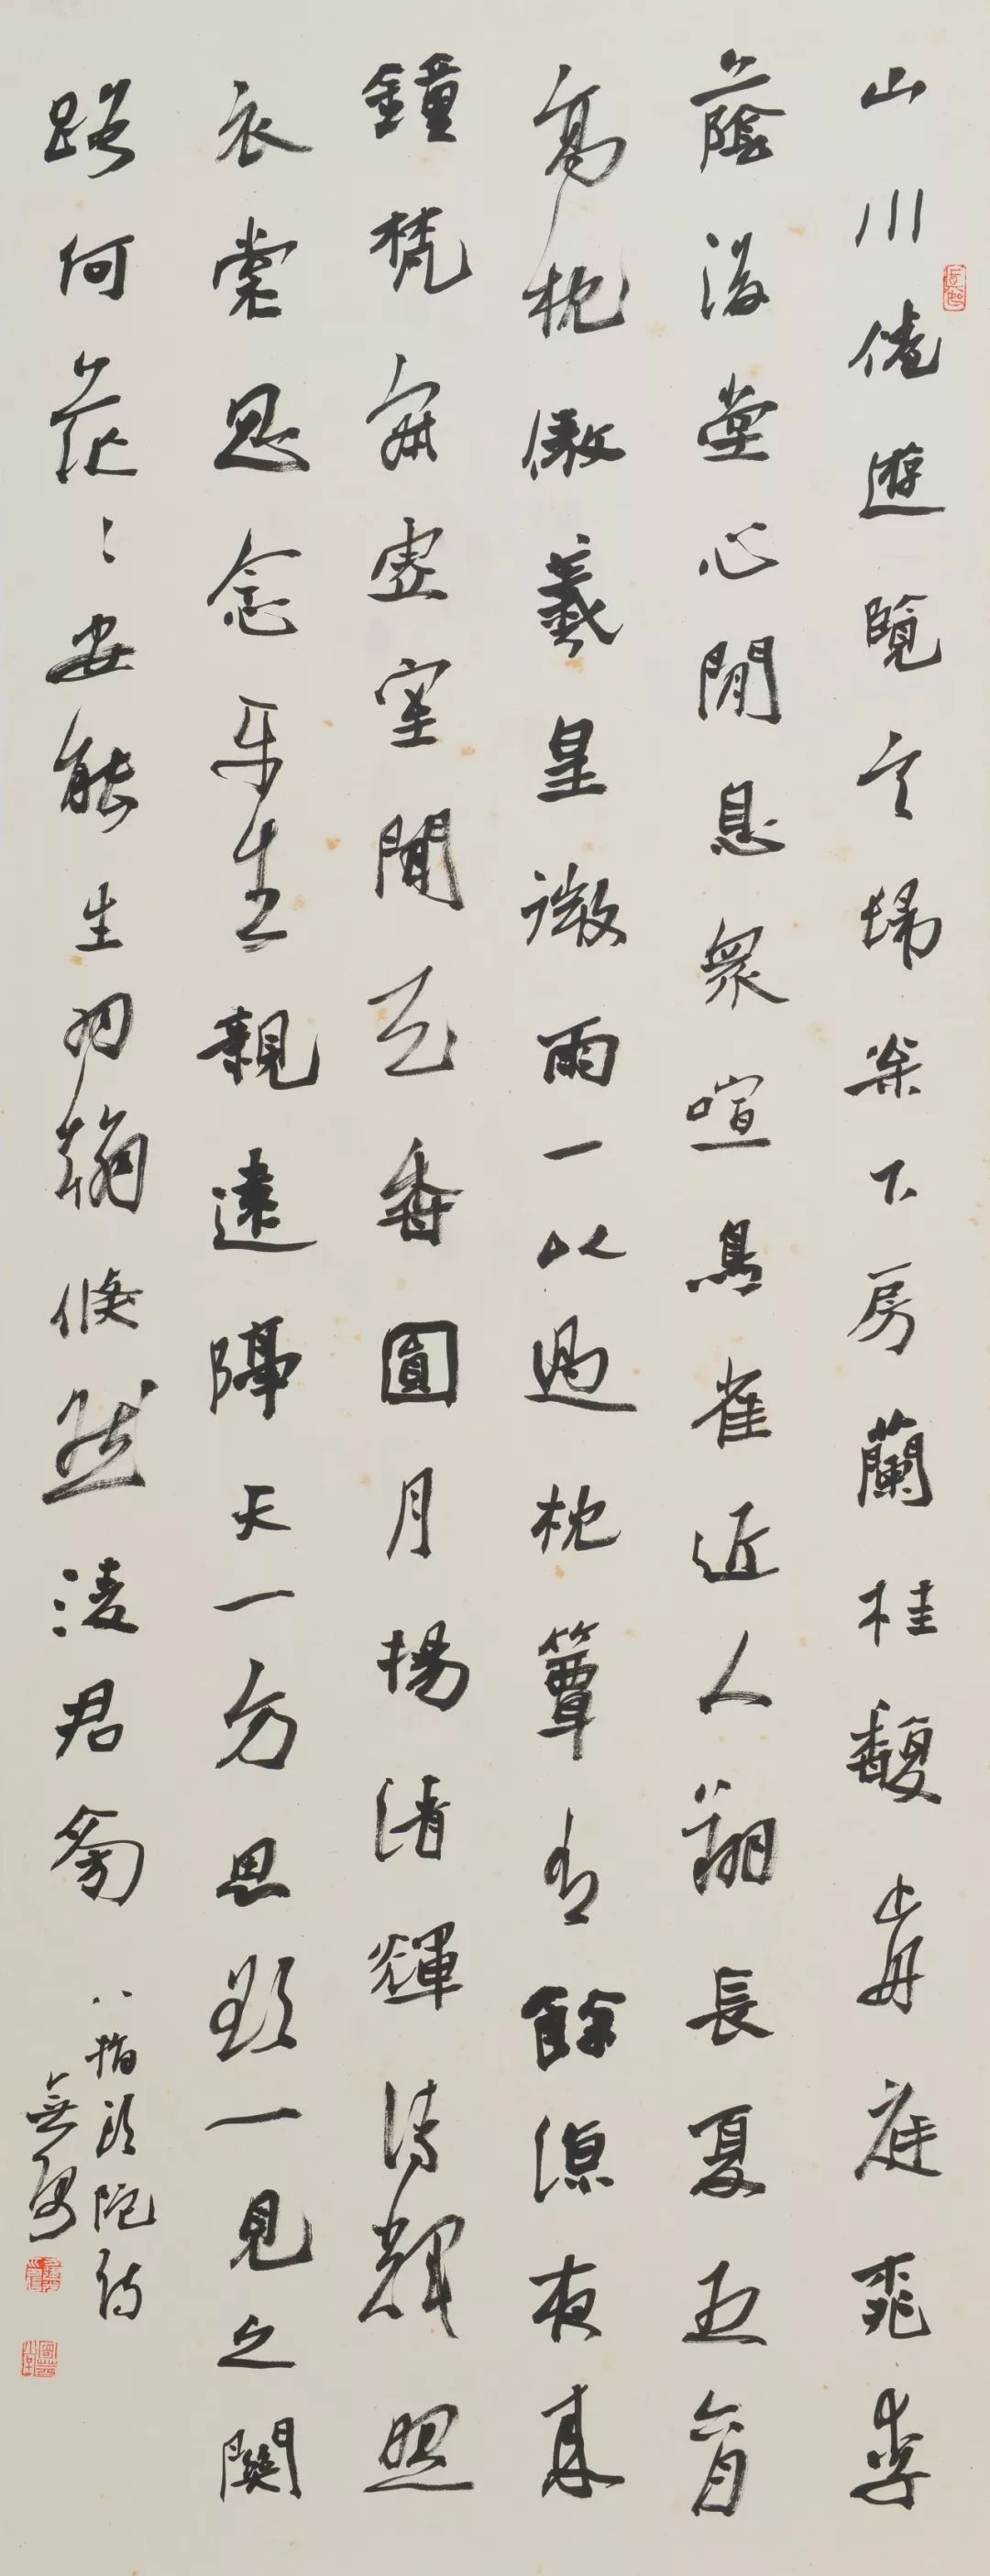 山川倦遊覽言歸樂下房蘭桂馥前庭桃李
蔭後堂心閒息衆喧鳥雀近人翔長夏五六月
高枕傲羲皇微雨一以過枕簟有餘涼夜來
鐘梵寂虛室聞天香圓月揚清輝清輝照
衣裳思念平生親遠隔天一方思欲一見之關
路何茫〻安能生羽翰倏然凌君旁
八指頭陀詩
無